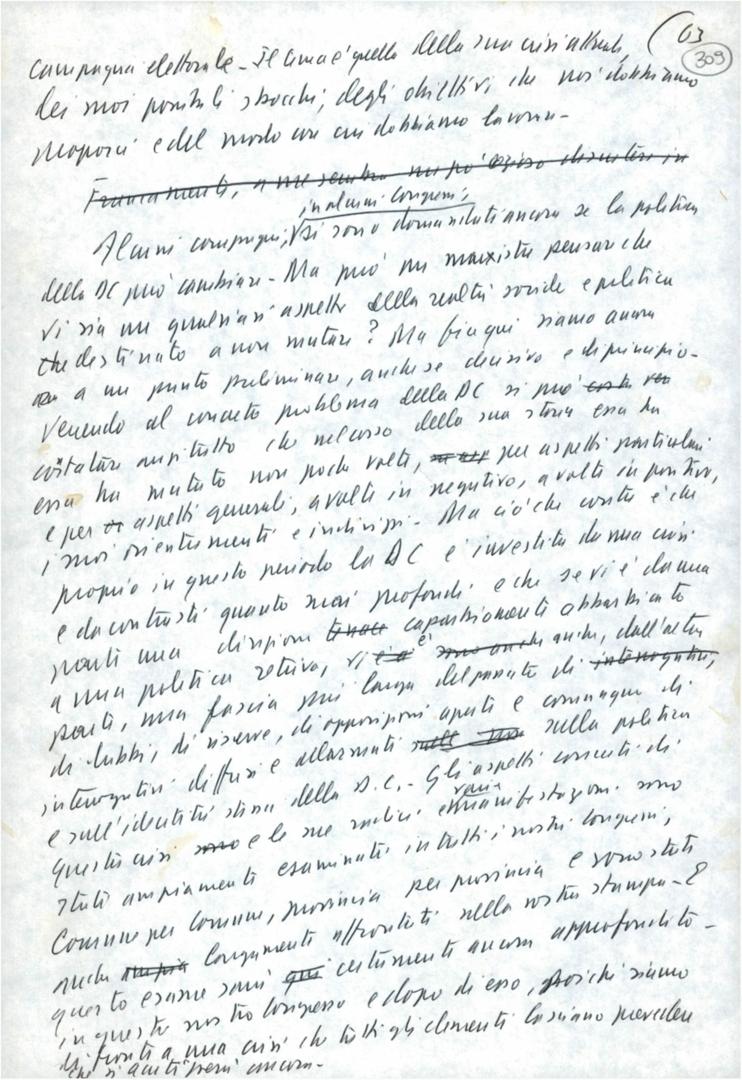 63
309
campagna elettorale - Il tema è quello della sua crisi attuale,
dei suoi possibili sbocchi, degli obiettivi che noi dobbiamo
proporci e del modo con cui dobbiamo lavorare -
Francamente, a me sembra un po' ozioso discutere in
in alcuni Congressi,
Alcuni compagni, si sono domandati ancora se la politica
della DC può cambiare - Ma può un marxista pensare che
vi sia un qualsiasi aspetto della realtà sociale e politica
che destinato a non mutare? Ma fin qui siamo ancora
a un punto preliminare, anche se decisivo e di principio -
Venendo al concreto problema della DC si può
costatare anzitutto che nel corso della sua storia essa ha
essa ha mutato non poche volte, per aspetti particolari
e per aspetti generali, a volte in negativo, a volte in positivo,
i suoi orientamenti e indirizzi - Ma ciò che conta è che
proprio in questo periodo la DC è investita da una crisi
e da contrasti quanto mai profondi e che se vi è da una
parte una direzione tenace caparbiamente abbarbicata
a una politica retriva, vi è anche, dall'altra
parte, una fascia più larga del passato di interrogativi,
di dubbi, di riserve, di opposizioni aperte e comunque di
interrogativi diffusi e allarmati sulla politica
e sull'identità stessa della D.C. - Gli aspetti concreti di
questa crisi e le sue radici e varie manifestazioni sono
stati ampiamente esaminati in tutti i nostri Congressi,
Comune per comune, provincia per provincia e sono stati
anche lungamente affrontati nella nostra stampa - E
questo esame sarà qui certamente ancora approfondito -
in questo nostro Congresso e dopo di esso, poiché siamo
di fronte a una crisi che tutti gli elementi lasciano prevedere
che si acutizzerà ancora -